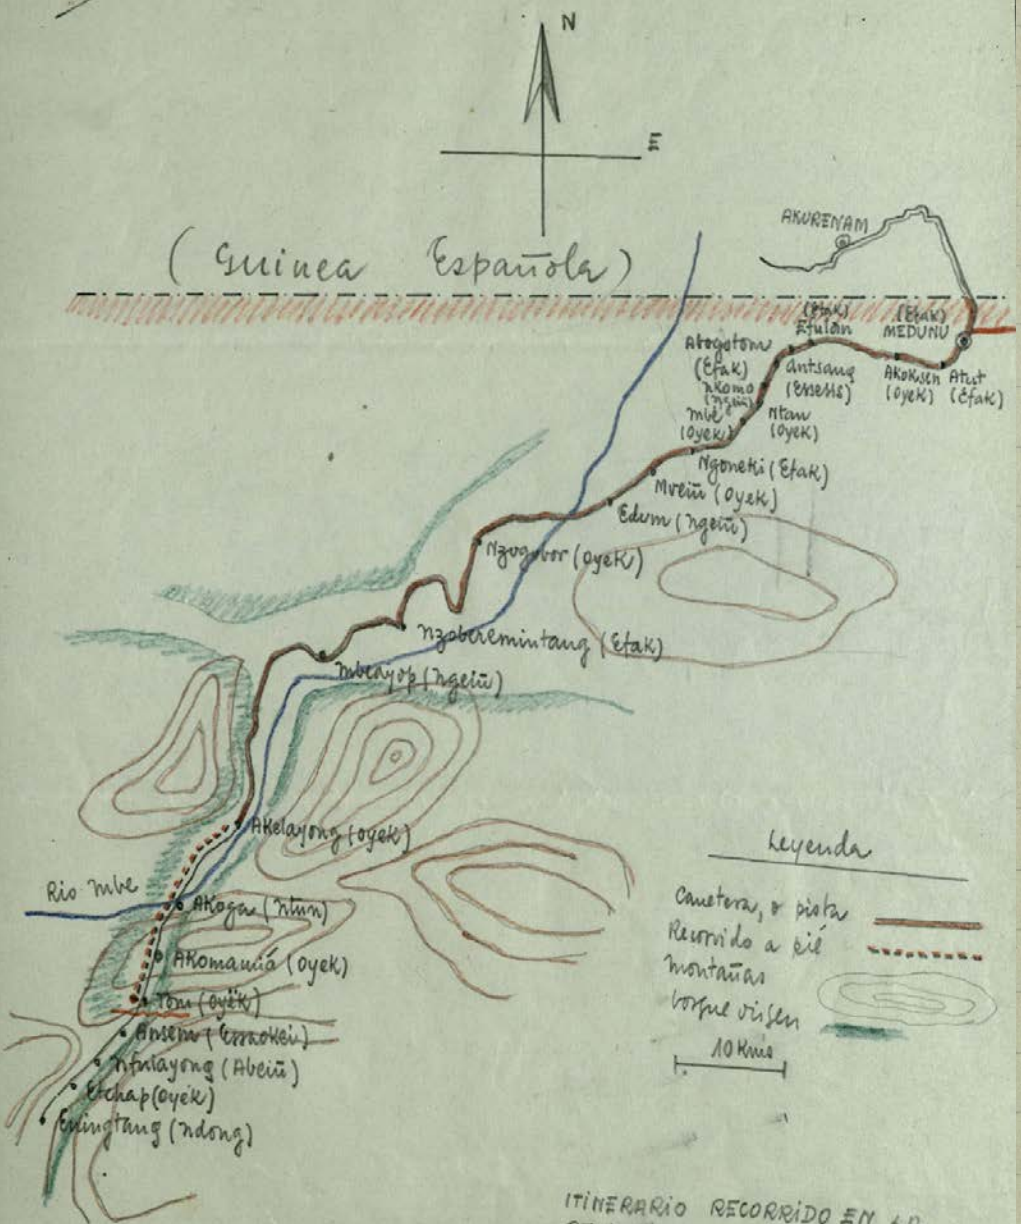 N
E
AKURENAM
(Guinea Española)
(Efak)
Efulan
(Efak)
MEDUNU
Abogotom
(Efak)
Antsang
(Essess)
Akoksen
(Oyek)
Atut
(Efak)
Nkomo
(Ngeiñ)
Mbe
(Oyek)
Ntan
(Oyek)
Ngoneki (Efak)
Mveiñ (Oyek)
Edum (Ngeiñ)
Nzogobor (Oyek)
Nzoberemintang (Efak)
Mbeayop (Ngeiñ)
Akelayong (Oyek)
Rio Mbe
Akoga (Ntun)
Akomamñá (Oyek)
Tom (Oyek)
Ansem (Essaokei)
Nfulayong (Abeiñ)
Etchap (Oyek)
Eningtang (Ndong)
Leyenda
Carretera, o pista
Recorrido a pié
Montañas
bosque virgen
10 Kms
ITINERARIO RECORRIDO EN